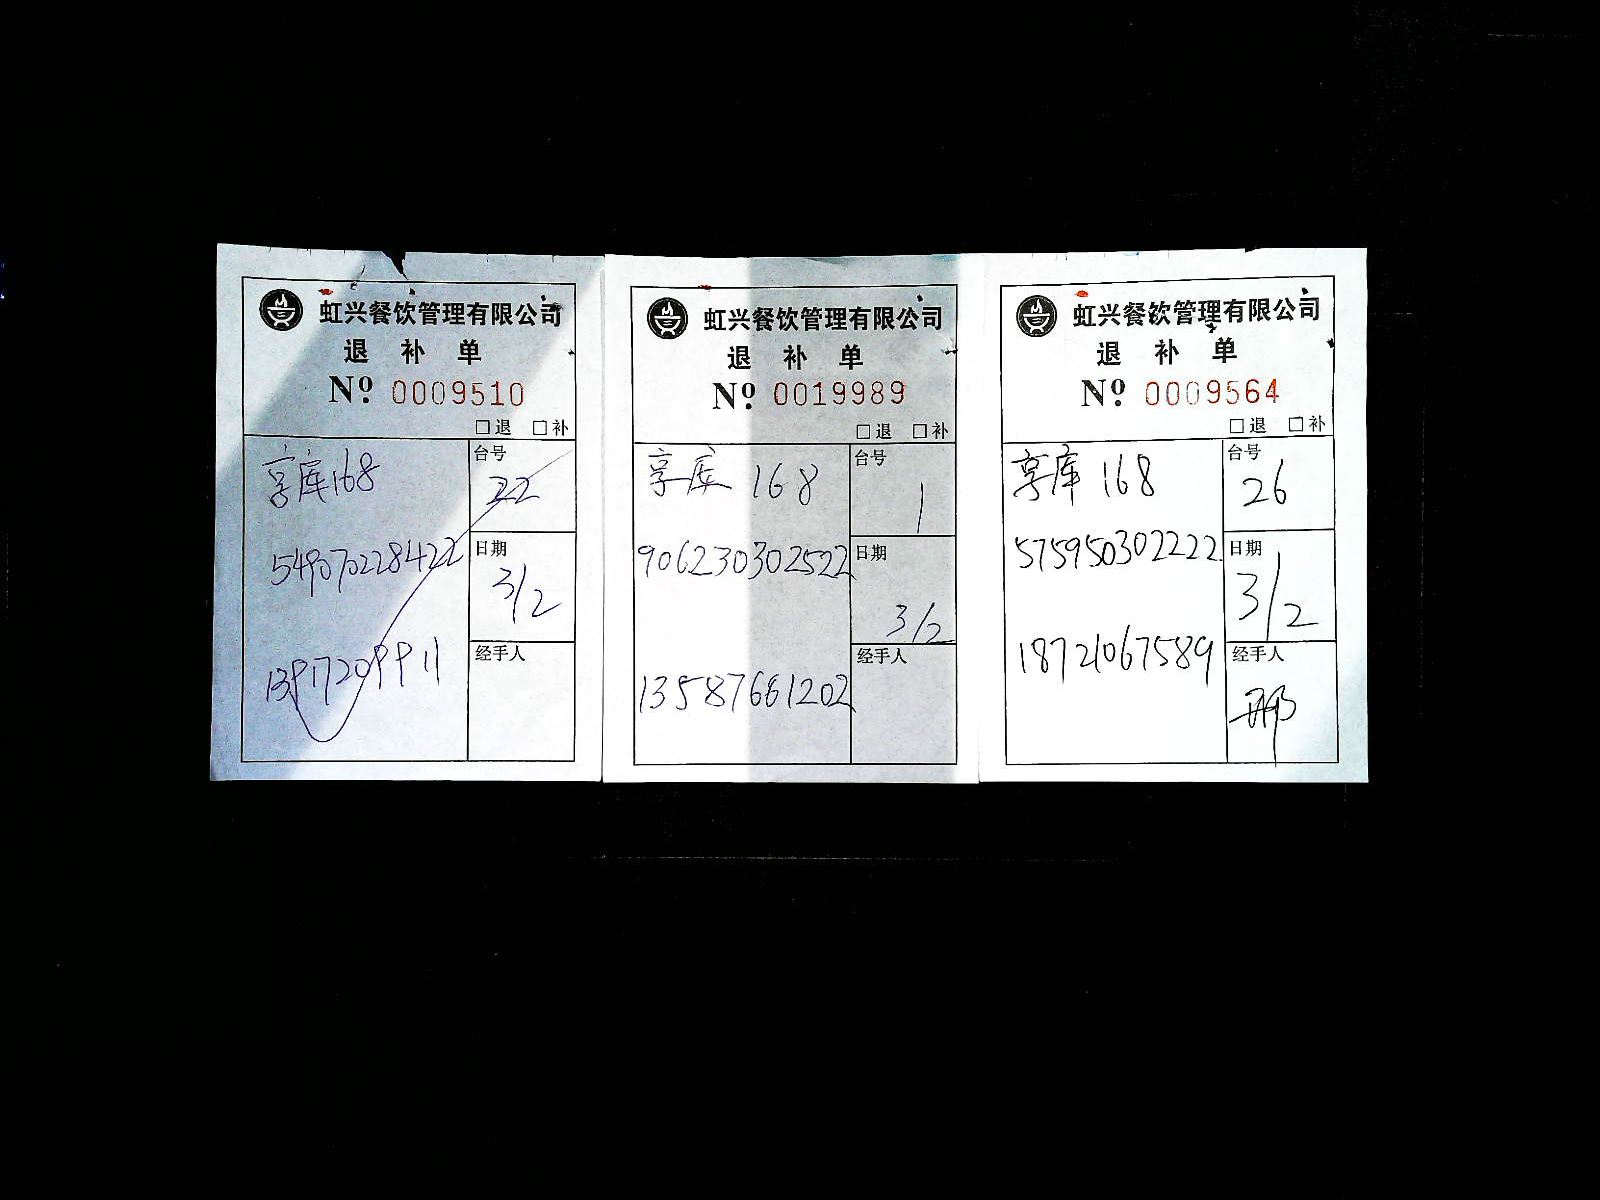 虹兴餐饮管理有限公司
退 补 单
Nº 0009510
□退 □补
享库168
台号
22
549070228422
日期
3/2
13917209911
经手人
虹兴餐饮管理有限公司
退 补 单
Nº 0019989
□退 □补
享库 168
台号
1
906230302522
日期
3/2
13587661202
经手人
虹兴餐饮管理有限公司
退 补 单
Nº 0009564
□退 □补
享库 168
台号
26
575950302222
日期
3/2
18721067589
经手人
邢